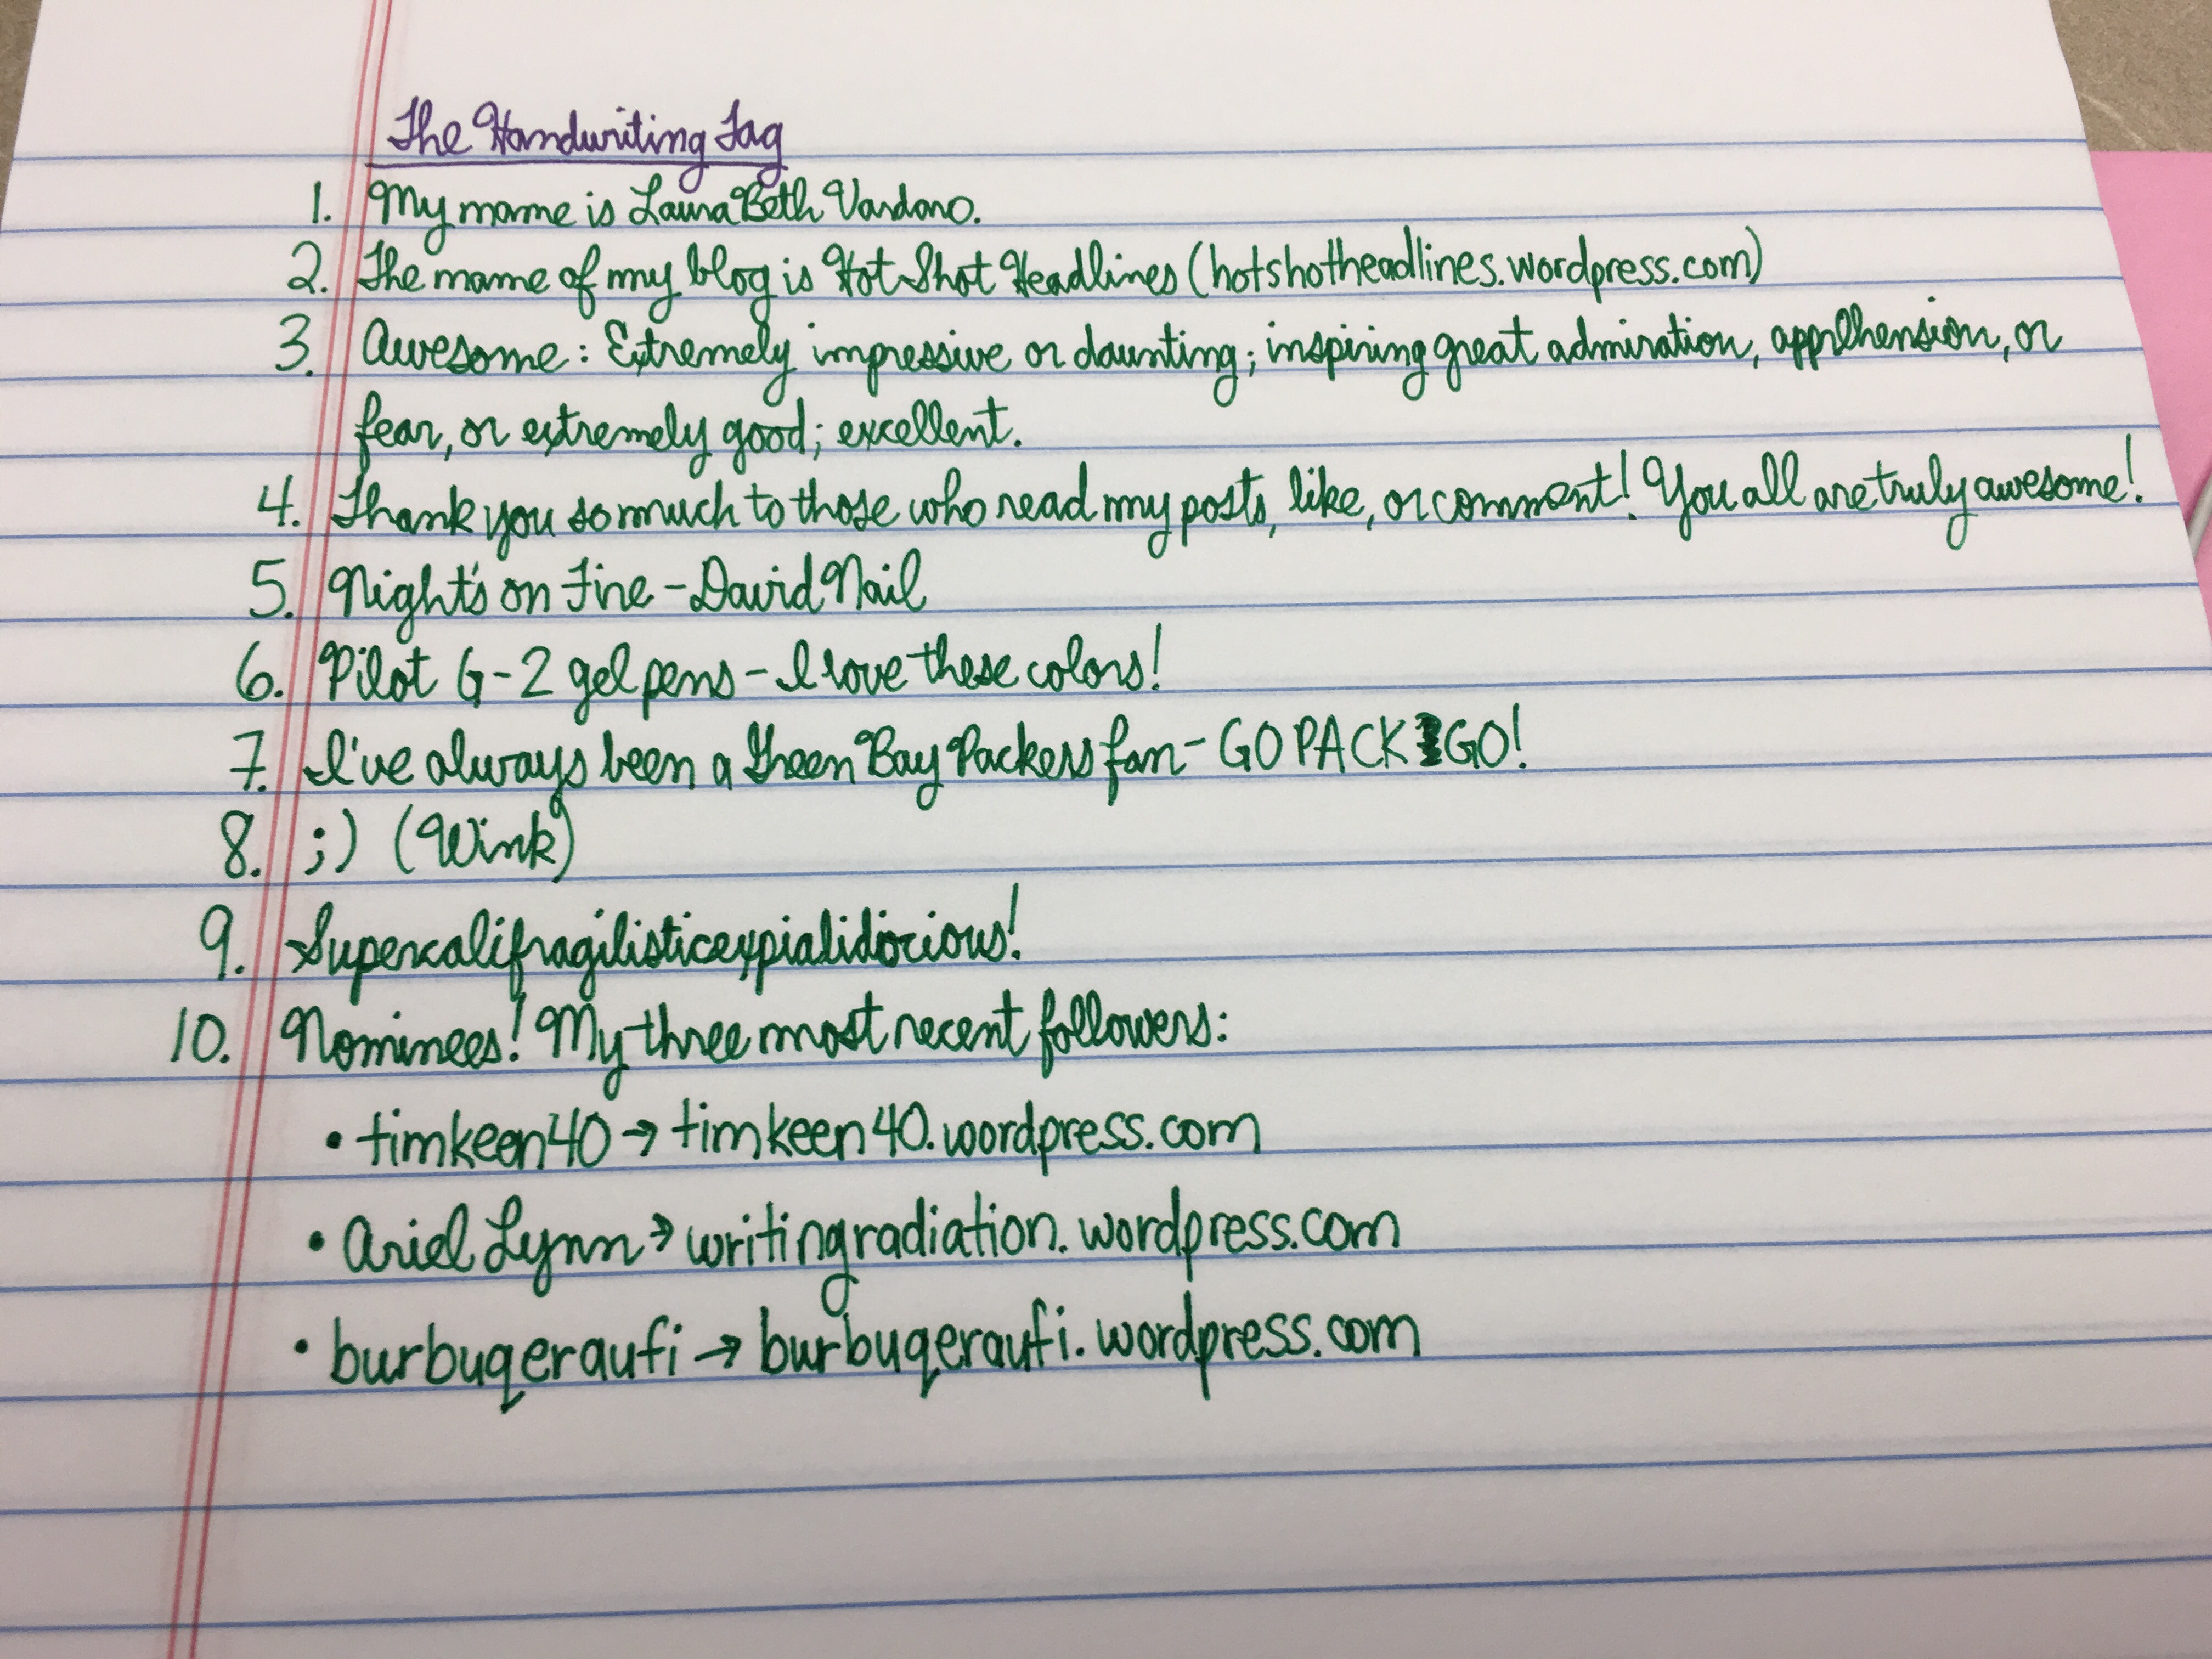 The Handwriting Tag
1. My name is Laura Beth Vardaro.
2. The name of my blog is Hot Shot Headlines (hotshotheadlines.wordpress.com)
3. Awesome: Extremely impressive or daunting; inspiring great admiration, apprehension, or
fear, or extremely good; excellent.
4. Thank you so much to those who read my posts, like, or comment! You all are truly awesome!
5. Night's on Fire - David Nail
6. Pilot G-2 gel pens - I love these colors!
7. I've always been a Green Bay Packers fan - GO PACK GO!
8. ;) (Wink)
9. Supercalifragilisticexpialidocious!
10. Nominees! My three most recent followers:
• timkeen40 → timkeen40.wordpress.com
• Ariel Lynn → writingradiation.wordpress.com
• burbuqeraufi → burbuqeraufi.wordpress.com